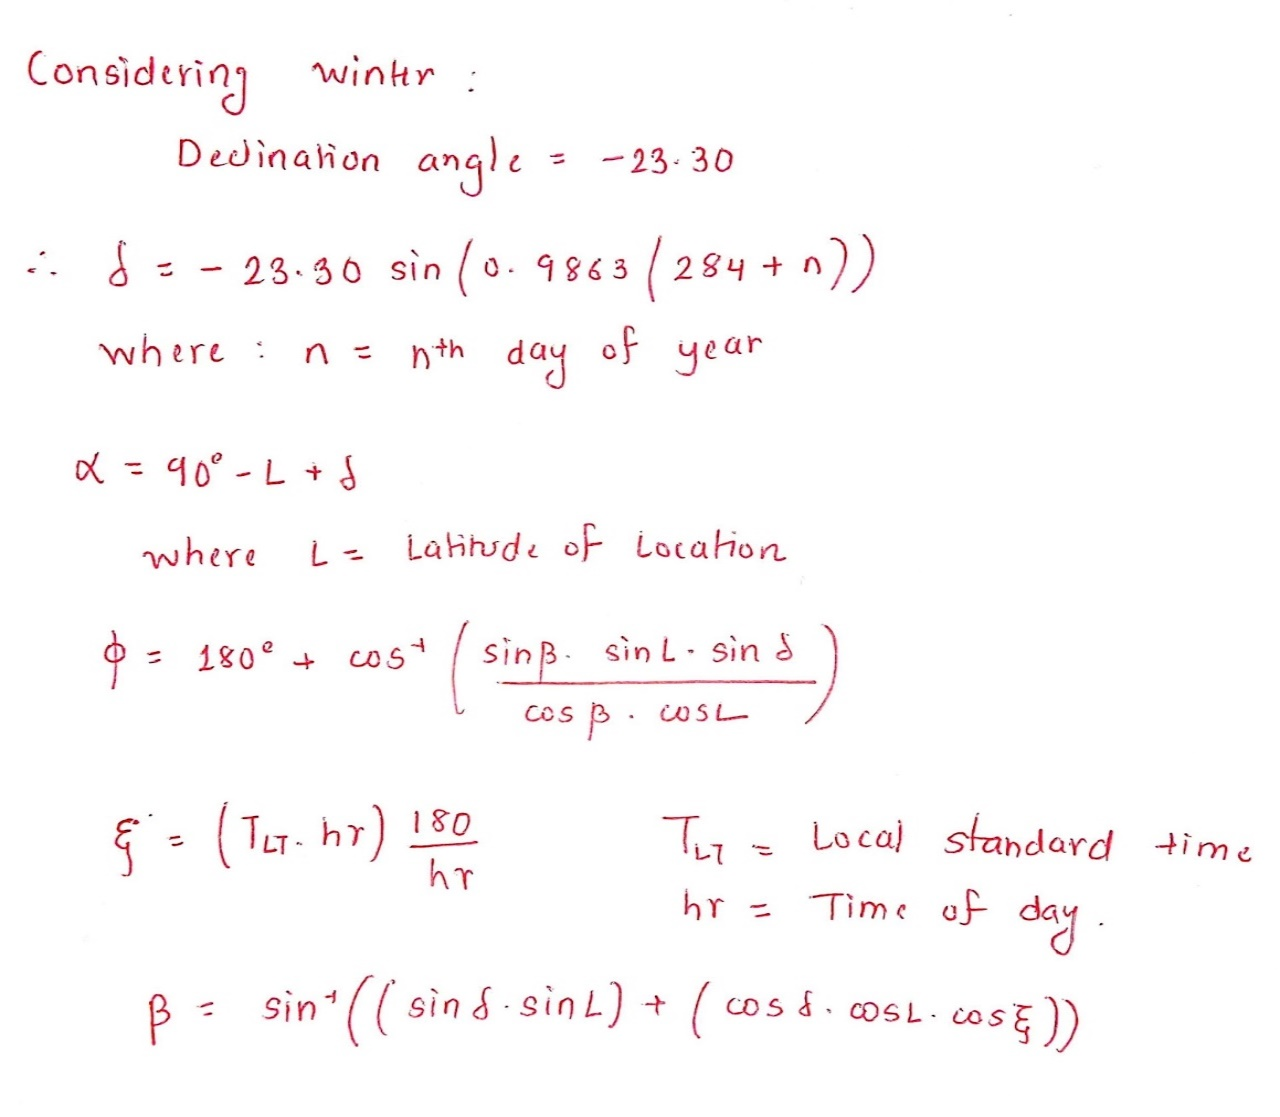 Considering winter :
Declination angle = -23.30
∴ δ = - 23.30 sin(0.9863(284 + n))
where : n = nth day of year
α = 90° - L + δ
where L = Latitude of Location
ϕ = 180° + cos⁻¹ ( sinβ. sin L. sin δ / cos β . cosL )
ξ = (T_LT. hr) 180 / hr T_LT = Local standard time
hr = Time of day.
β = sin⁻¹(( sin δ. sin L) + ( cos δ. cosL. cos ξ ))